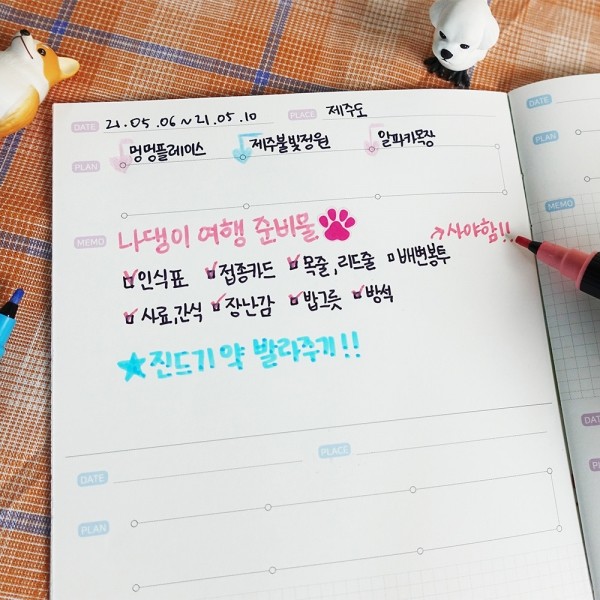 DATE 21.05.06~21.05.10 PLACE 제주도
PLAN 멍멍플레이스 제주불빛정원 알파카목장
MEMO 나댕이 여행 준비물 →사야함!!
인식표 접종카드 목줄,리드줄 배변봉투
사료,간식 장난감 밥그릇 방석
★진드기약 발라주기!!
DATE PLACE
PLAN
DATE
PLAN
MEMO
DATE